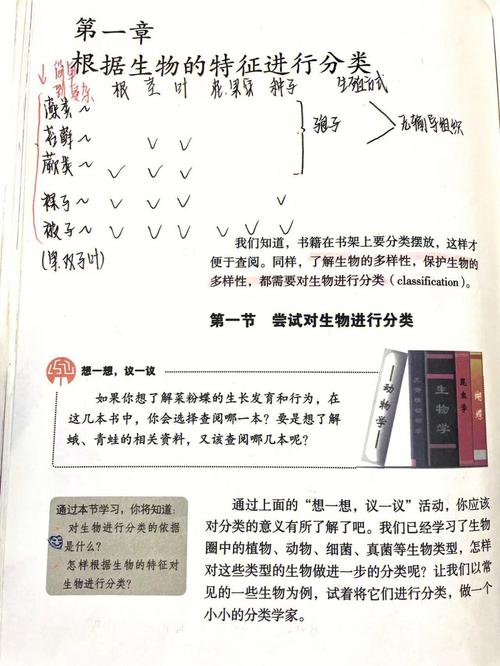 第一章
根据生物的特征进行分类
简单
到复杂
根 茎 叶 花 果实 种子 生殖方式
藻类～
苔藓～ ✓ ✓
蕨类～ ✓ ✓ ✓
孢子
无输导组织
裸子～ ✓ ✓ ✓ ✓
被子～ ✓ ✓ ✓ ✓ ✓ ✓
(单双子叶)
我们知道，书籍在书架上要分类摆放，这样才
便于查阅。同样，了解生物的多样性，保护生物的
多样性，都需要对生物进行分类（classification）。
第一节 尝试对生物进行分类
想一想，议一议
如果你想了解菜粉蝶的生长发育和行为，在
这几本书中，你会选择查阅哪一本？要是想了解
蛾、青蛙的相关资料，又该查阅哪几本呢？
动物学
生物学
昆虫学
蝴蝶
通过本节学习，你将知道：
对生物进行分类的依据
是什么？
怎样根据生物的特征对
生物进行分类？
通过上面的“想一想，议一议”活动，你应该
对分类的意义有所了解了吧。我们已经学习了生物
圈中的植物、动物、细菌、真菌等生物类型，怎样
对这些类型的生物做进一步的分类呢？让我们以常
见的一些生物为例，试着将它们进行分类，做一个
小小的分类学家。